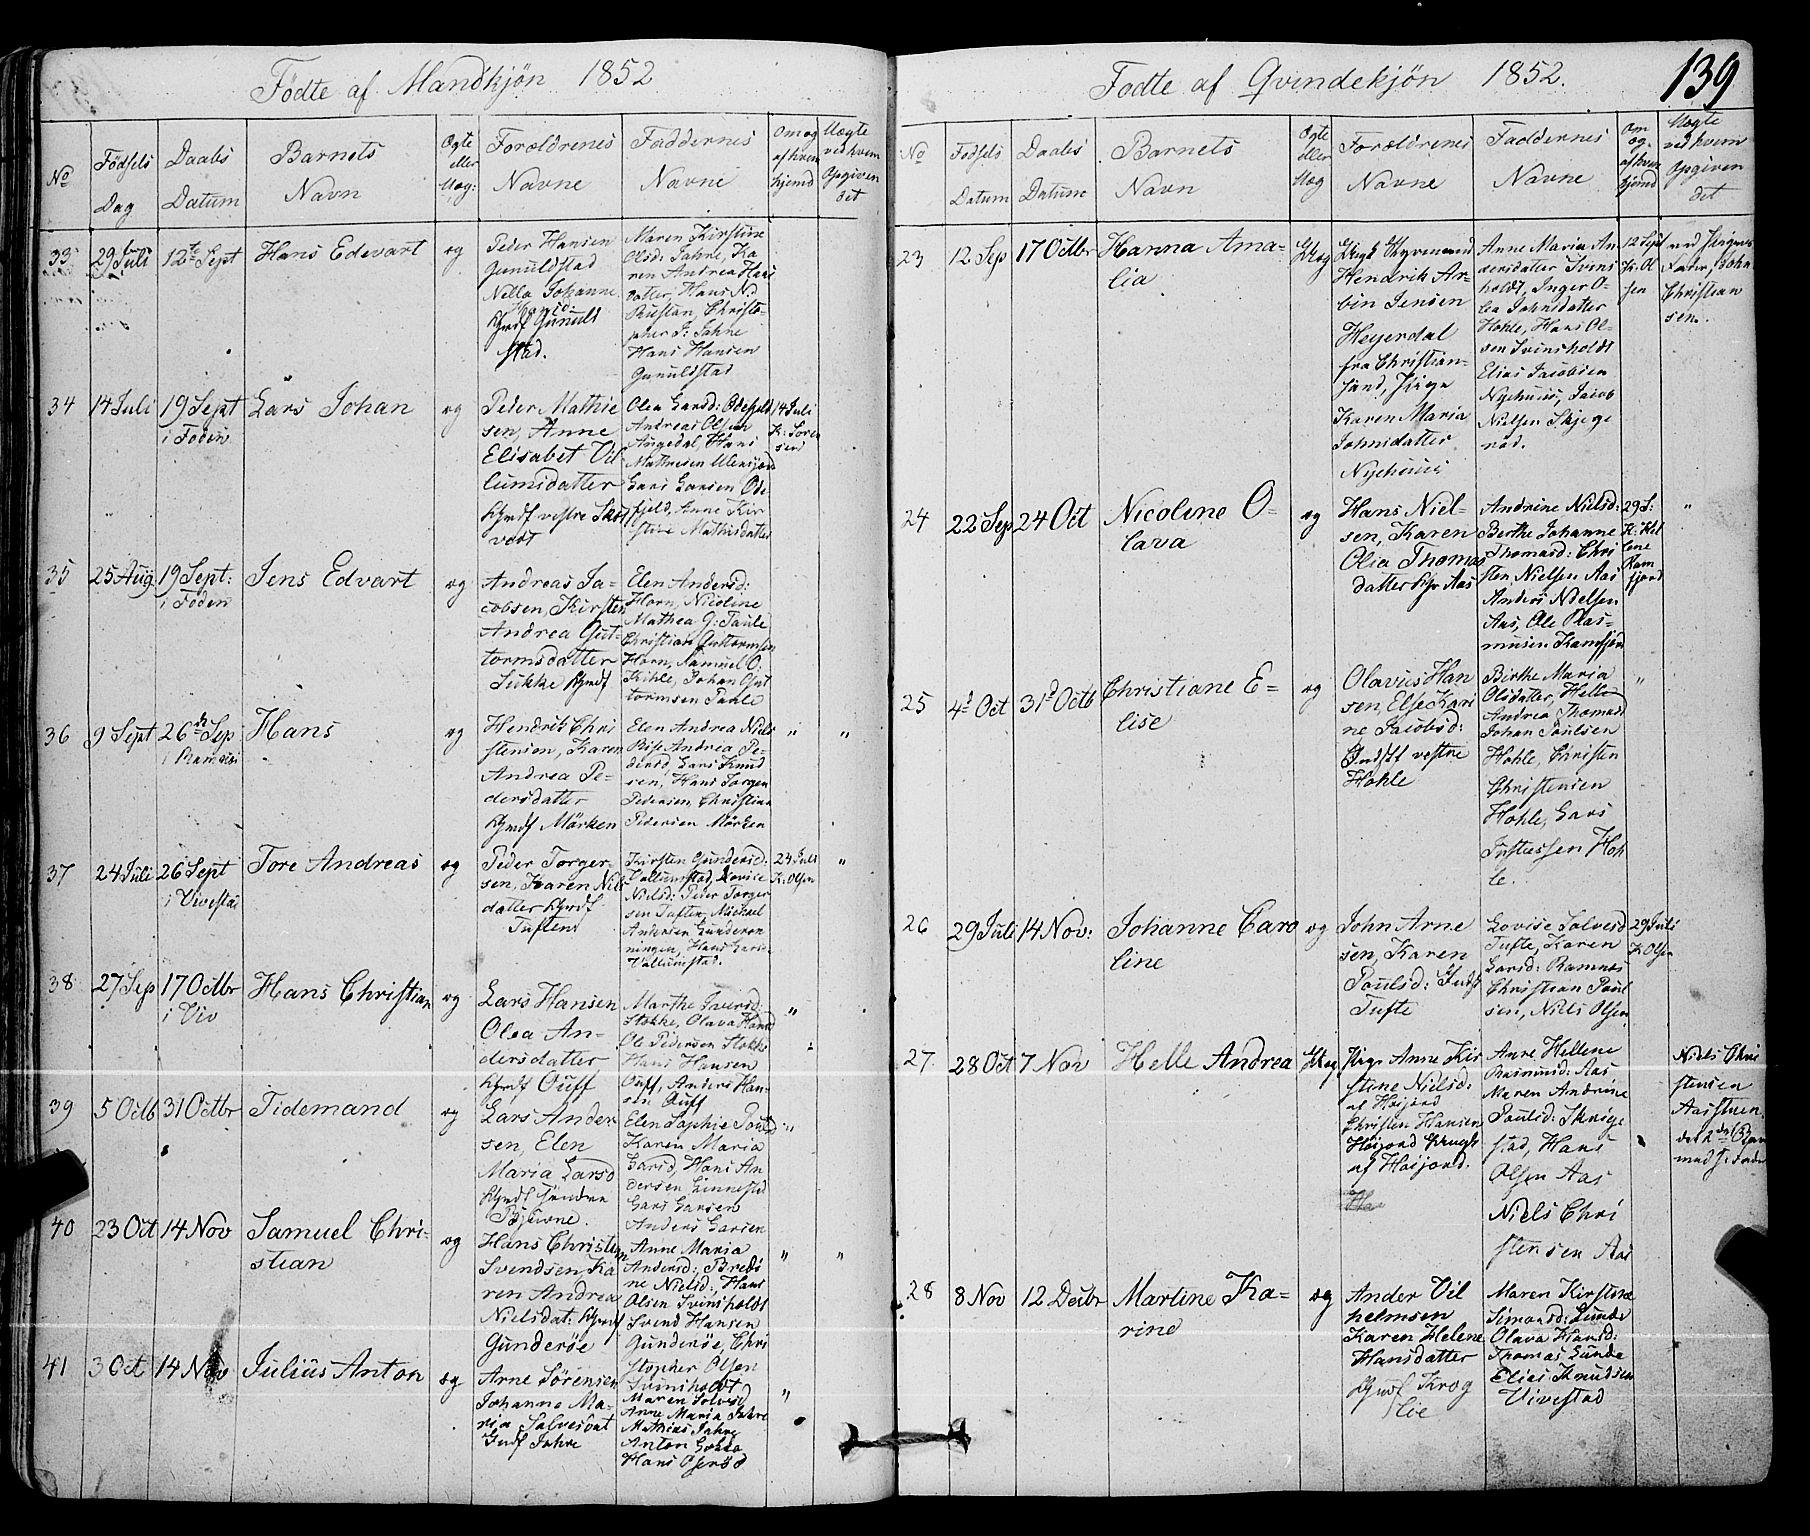 Födte af Mandkjøn 1852
No
Födsels Dag
Daabs Datum
Barnets Navn
Ægte eller Uæg:
Forældrenes Navne
Faddernes Navne
Om og af hvem hjemd
Uægte ved hvem Opgiven det
33
29 Juli
12te Sept
Hans Edevart
æg
Peder Hansen
Gunuldstad
Nella Johanne
Gunuld
stad.
Maren Kirstine
Olsd: Jahre, Ka
ren Andrea Hans
datter, Hans N.
Rustan, Christo-
pher P. Jahre
Hans Hansen
Gunuldstad
34
14 Juli
19 Sept
i Foden
Lars Johan
æg
Peder Mathie
sen, Anne
Elisabet Vil-
lumsdatter
Gmdf vestre
Olea Larsd:
Andreas Olsen
Aagedal, Hans
Mathiesen
Lars Larsen Ode
fjeld, Anne Kir
stine Mathisdatter
14 Juli
K: Søren
sen
35
25 Aug
19 Sept:
i Foden
Jens Edvart
æg
Andreas Ja-
cobsen, Kirsten
Andrea Gut-
tormsdatter
Sukke Gmdf
Elen Andersd:
Horn, Nicoline
Mathea G: Taule
Christian Guttormsen
Horn, Samuel O.
Kihle, Johan Gut
tormsen Taule
36
9 Sept
26de Sep
i Ramnæs
Hans
æg
Hendrik Chri
stensen, Karen
Andrea Pe-
dersdatter
Gmdf Mörken
Elen Andrea Niels
Andrea Pe-
dersd, Lars Knud
sen, Hans Jørgen
Pedersen, Christian
Pedersen Mörken
"
"
37
24 Juli
26 Sept
i Vivestad
Tore Andreas
æg
Peder Torger-
sen, Karen Niels
datter Gmdf
Tuften
Kirsten Gundersd:
Vallumstad, Lovise
Nielsd: Peder Torger
sen Tuften, Michael
Andersen
Hans Lars-
Vallumstad.
23 Juli
K: Olsen
"
38
27 Sep
17 Octbr
i Viv
Hans Christian
æg
Lars Hansen
Olea An-
dersdatter
Gmdf Ouff
Marthe Iversd:
Stokke, Olava Hansd
Ole Pedersen Stokke
Hans Hansen
Ouff, Anders Han-
sen Ouff
"
39
5 Octb
31 Octbr
Tidemand
æg
Lars Ander
sen, Elen
Maria Larsd
Gmdf søndre
Elen Sophie Pouls
Karen Maria
Larsd, Hans An
dersen Linnestad
Lars Larsen
Anders Larsen
"
40
23 Oct
14 Nov
Samuel Chri-
stian
æg
Hans Christian
Svendsen, Ka
ren Andrea
Nielsdat: Gmdf
Gunderøe
Anne Maria
Andersd: Bredi
ne Nielsd: Hans
Olsen Svinsholdt
Svend Hansen
Gunderöe, Chri
stopher Olsen
Svinsholdt
"
"
41
3 Oct
14 Nov
Julius Anton
æg
Arne Sørensen
Johanne Ma-
ria Salvesdat
Jahre
Maren Salvesd
Anne Maria Jahre
Mathias Jahre
Anton
Hans
"
Fødte af Qvindekjön 1852.
139
No
Fødsels Datum
Daabs Datum
Barnets Navn
Ægte eller Uæg
Forældrenes Navne
Faddernes Navne
Om og. af hvem hjemd
Uægte ved hvem Opgiven det
23
12 Sep
17 Octbr
Hanna Ama-
lia
Uæg
Ungk
Hendrik Ar-
bin Jensen
Heyerdal
fra Christian-
sand, Pige
Karen Maria
Johnsdatter
Nyehuus
Anne Maria An
dersdatter Svins
holdt, Inger O-
lea Johnsdatter
Hohle, Hans Ol-
sen Svinsholdt
Elias Jacobsen
Nyehuus, Jacob
Nielsen Skjege
rød.
12 Sept
K: Ol
sen
ved Pigens
Fader, John
Christian
sen.
24
22 Sep
24 Oct
Nicoline O-
lava
æg
Hans Niel-
sen, Karen
Olia Thomas
datter Aas
Andrine Nielsd:
Berthe Johanne
Thomasd: Chri
sten Nielsen Aas
Anders Nielsen
Aas, Ole Ras-
musen Kamfjord
29 S:
K:
Kam
fjord
"
25
4d Oct
31d Octb
Christiane E-
lise
æg
Olavus Han
sen, Else Kari
ne Jacobsd:
vestre
Hohle
Birthe Maria
Olsdatter, Helle
Andrea Thomasd
Johan Poulsen
Hohle, Christen
Christensen
Hohle, Lars
Justussen Hoh
le.
"
26
29 Juli
14 Nov:
Johanne Caro
line
æg
John Arne
sen, Karen
Poulsd:
Tufte
Lovise Salvesd
Tufte, Karen
Larsd: Ramnæs
Christian Poul
sen, Niels Olsen
29 Juli
K Olsen
27
28 Oct
7 Nov
Helle Andrea
Uæg
Pige Anne Kir
stine Nielsd:
af Høijord
Christen Hansen
Høijord
af Høijord.
Anne Hellene
Rasmusd: Aas
Maren Andrine
Poulsd:
stad, Hans
Olsen Aas
Niels Chri
stensen Aas
Niels Chri
stensen
28
8 Nov
12 Decbr
Martine Ka-
rine
æg
Ander Vil
helmsen
Karen Helene
Hansdatter
Gmdf Krog
slie
Maren Kirstine
Simonsd: Lunde
Olava Hansd:
Thomas Lunde
Elias Knudsen
Vivestad